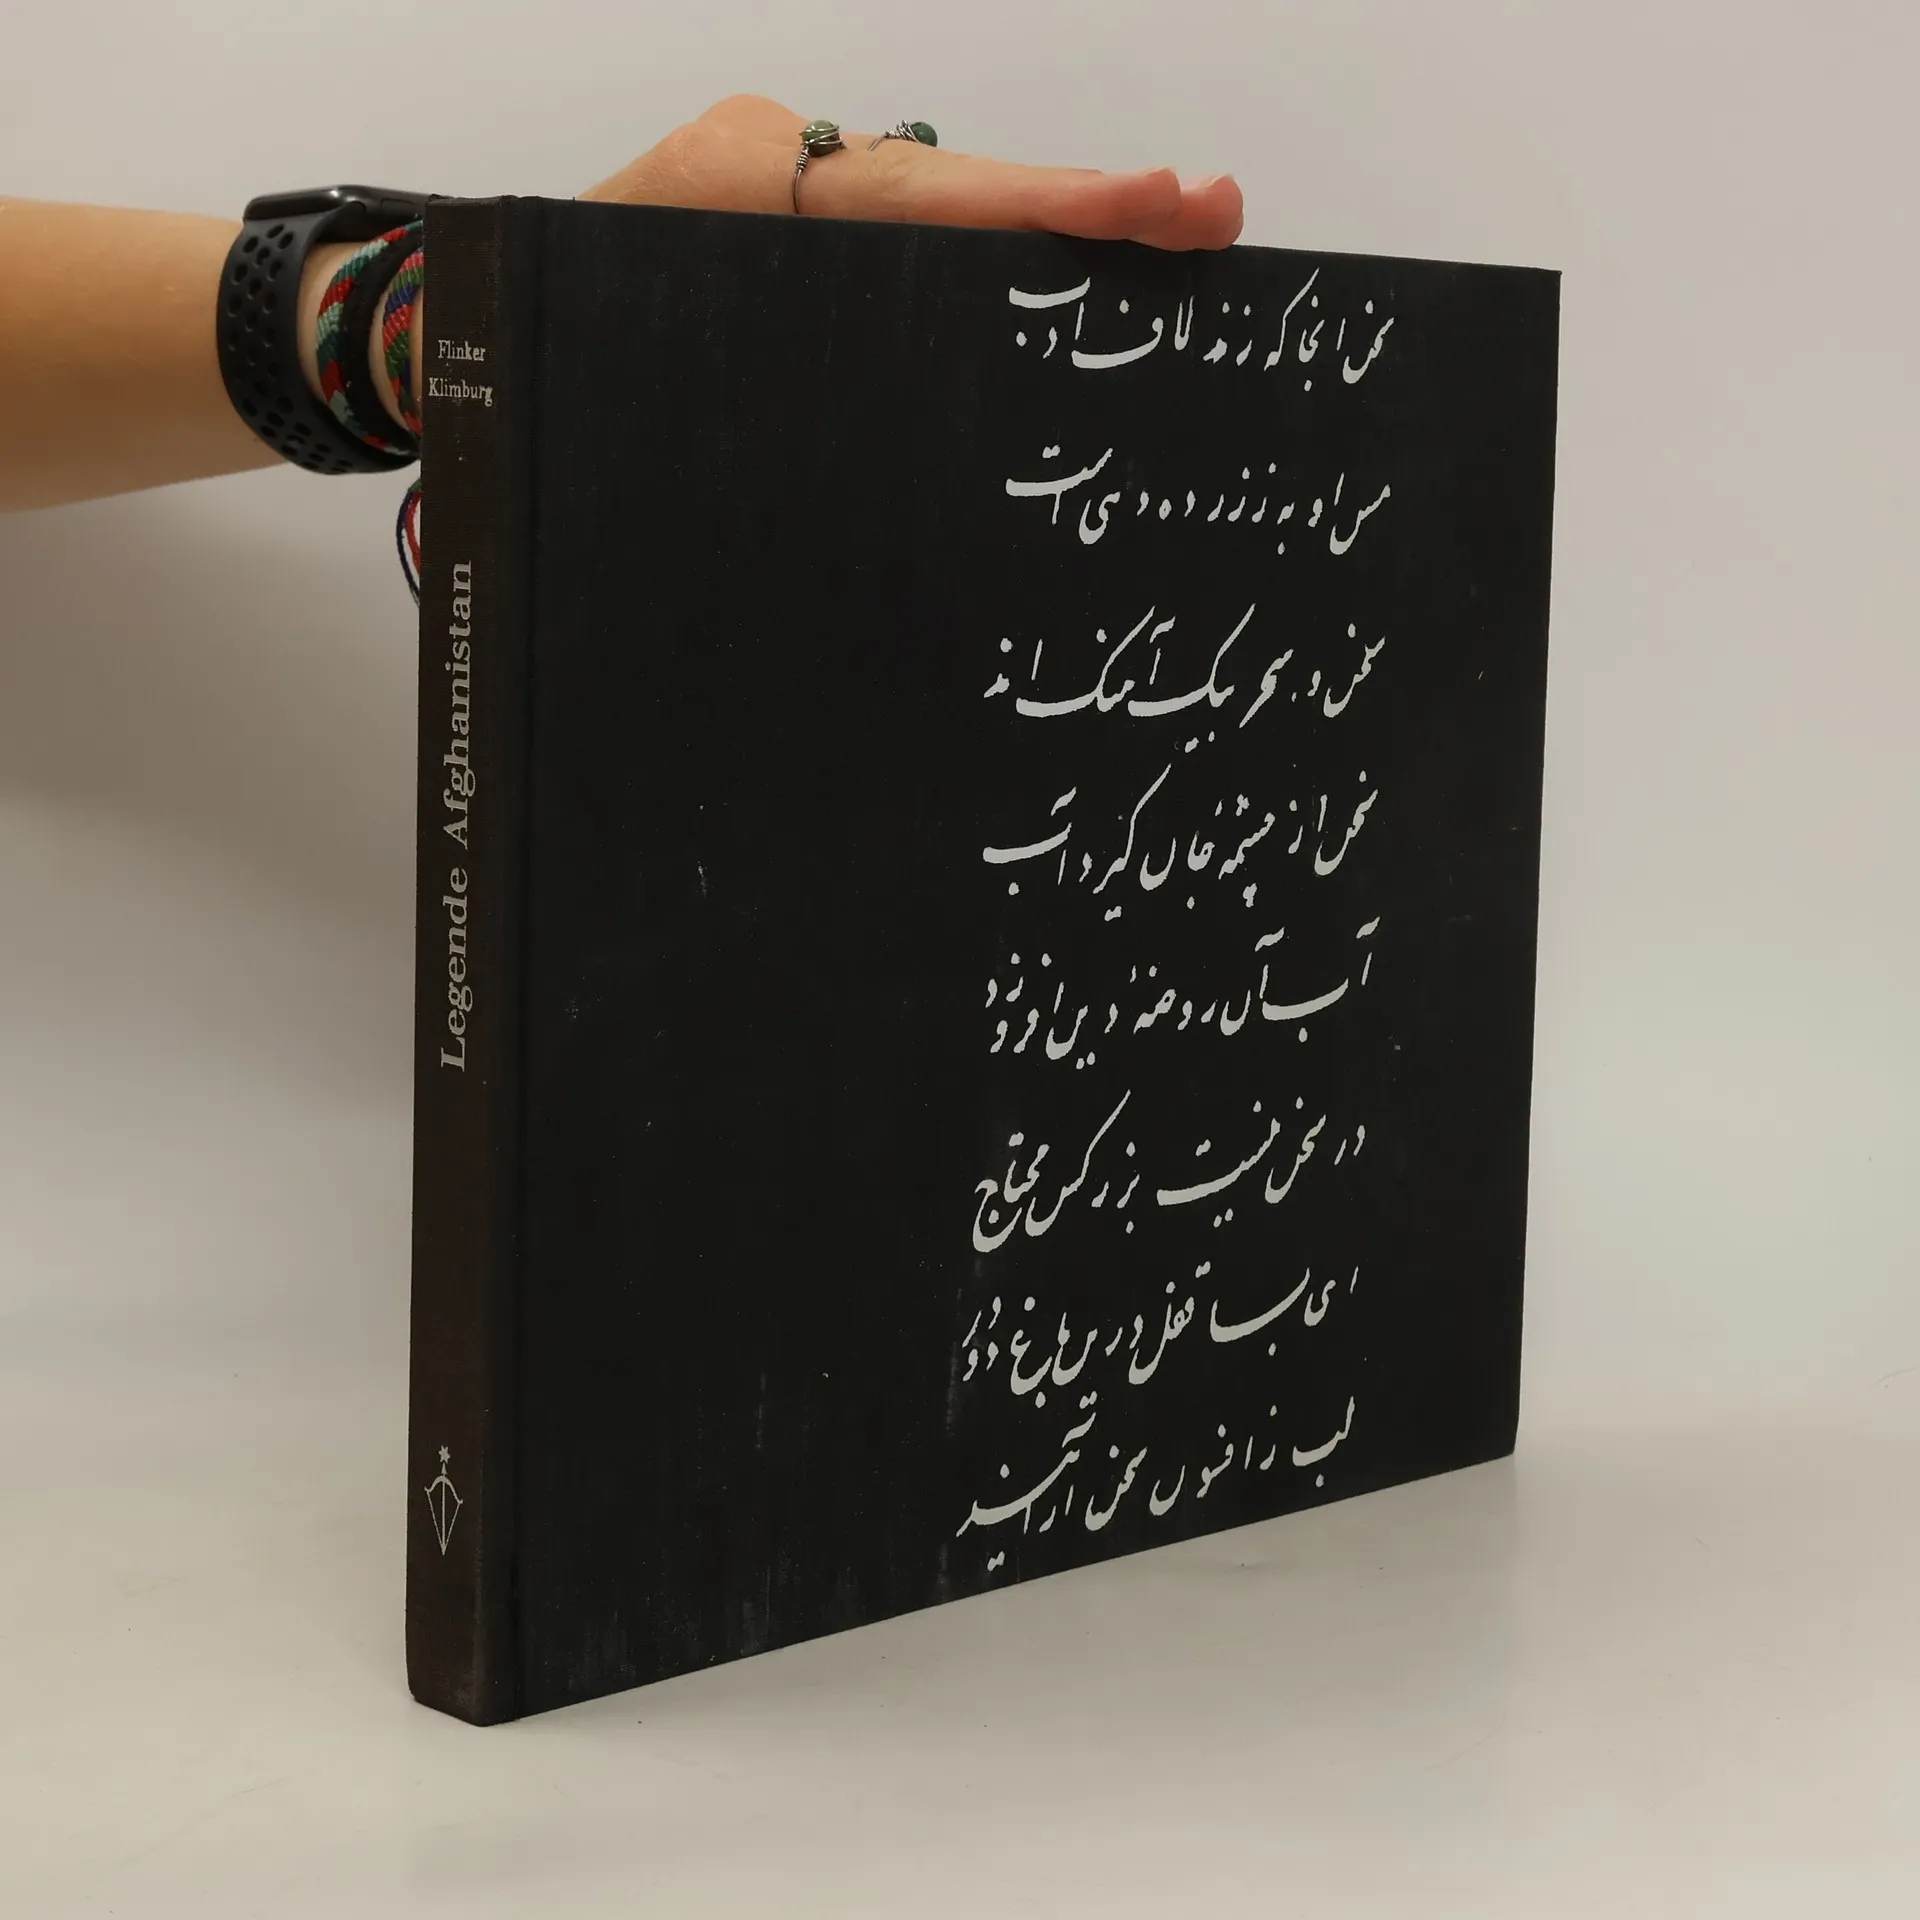 Flinker
Klimburg
Legende Afghanistan
سخن انجا که زند لاف ادب
مس او به ز زر ده دهی است
سخن و سحر بیک آهنک اند
سخن از چشمهٔ جان گیرد آب
آب آن روضهٔ دین افروزد
در سخن نیست بزر کس محتاج
ای بسا قفل درین باغ
لب ز افسون سخن